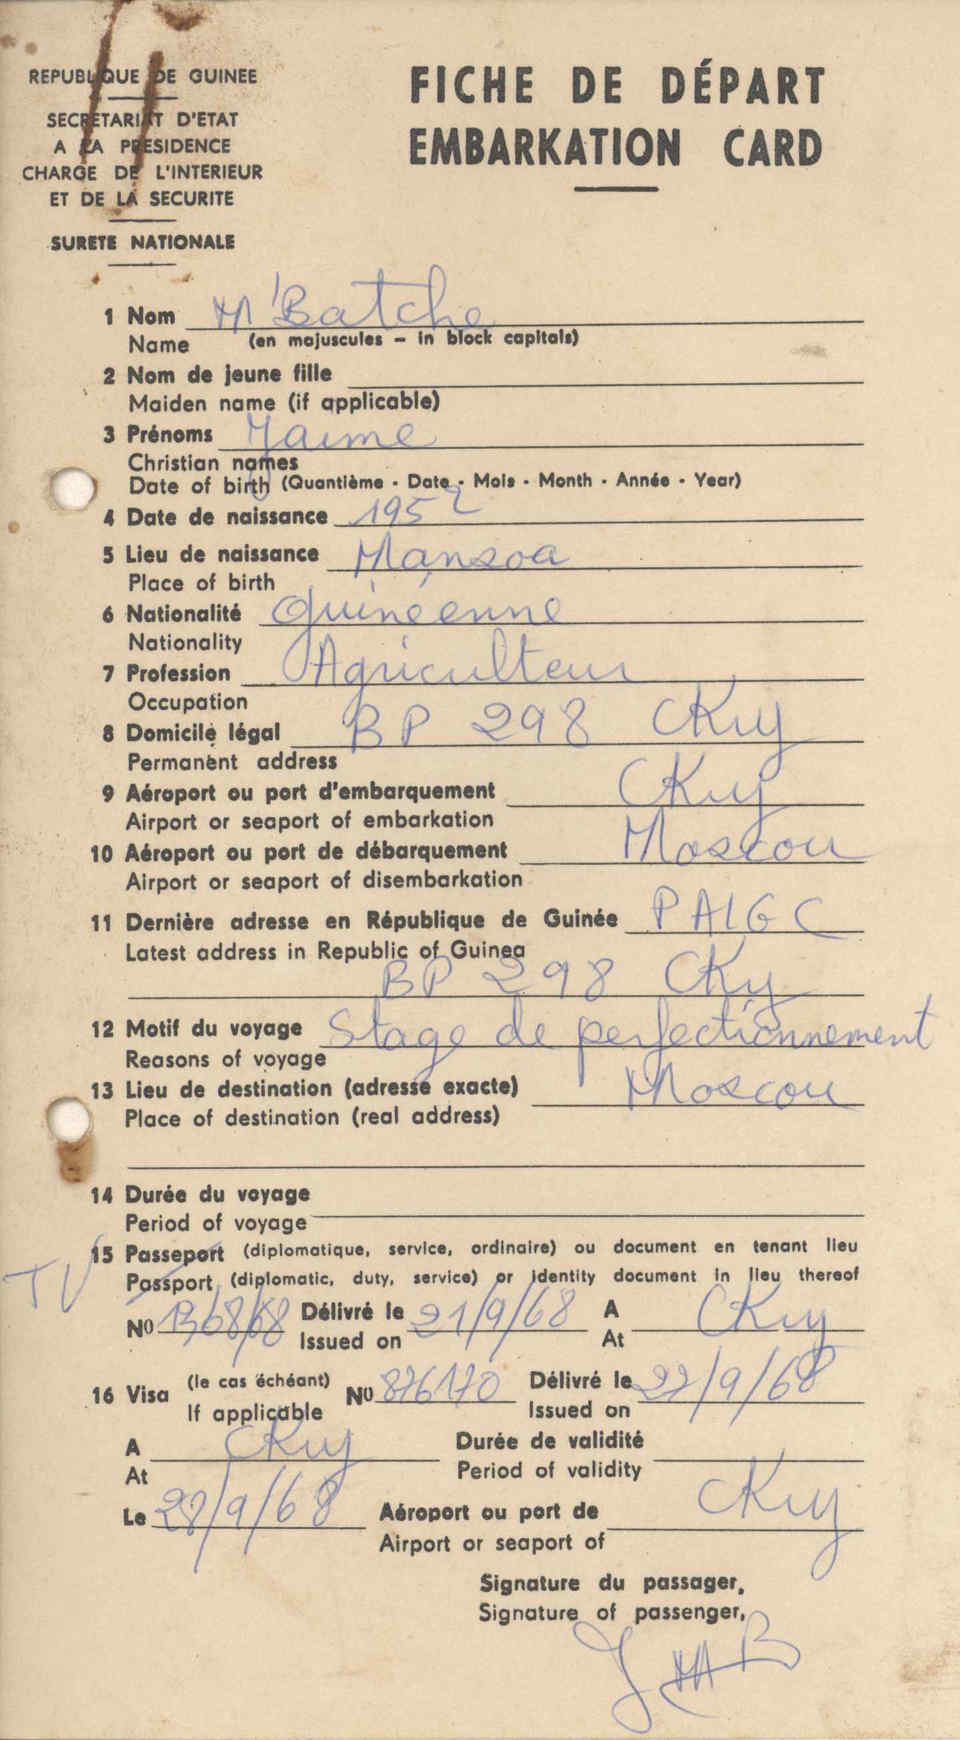 REPUBLIQUE DE GUINEE
SECRETARIAT D'ETAT
A LA PRESIDENCE
CHARGE DE L'INTERIEUR
ET DE LA SECURITE
SURETE NATIONALE
FICHE DE DÉPART
EMBARKATION CARD
1 Nom M'Batche
Name (en majuscules - in block capitals)
2 Nom de jeune fille
Maiden name (if applicable)
3 Prénoms Jaime
Christian names
Date of birth (Quantième - Date - Mois - Month - Année - Year)
4 Date de naissance 1952
5 Lieu de naissance Mansoa
Place of birth
6 Nationalité Guinéenne
Nationality
7 Profession Agriculteur
Occupation
8 Domicile légal BP 298 CKry
Permanent address
9 Aéroport ou port d'embarquement CKry
Airport or seaport of embarkation
10 Aéroport ou port de débarquement Moscou
Airport or seaport of disembarkation
11 Dernière adresse en République de Guinée PAIGC
Latest address in Republic of Guinea
BP 298 CKry
12 Motif du voyage Stage de perfectionnement
Reasons of voyage
13 Lieu de destination (adresse exacte) Moscou
Place of destination (real address)
14 Durée du voyage
Period of voyage
15 Passeport (diplomatique, service, ordinaire) ou document en tenant lieu
TV Passport (diplomatic, duty, service) or identity document in lieu thereof
No Délivré le 21/9/68 A CKry
Issued on At
16 Visa (le cas échéant) No 876170 Délivré le 27/9/68
If applicable Issued on
A CKry Durée de validité
At Period of validity
Le 28/9/68 Aéroport ou port de CKry
Airport or seaport of
Signature du passager,
Signature of passenger,